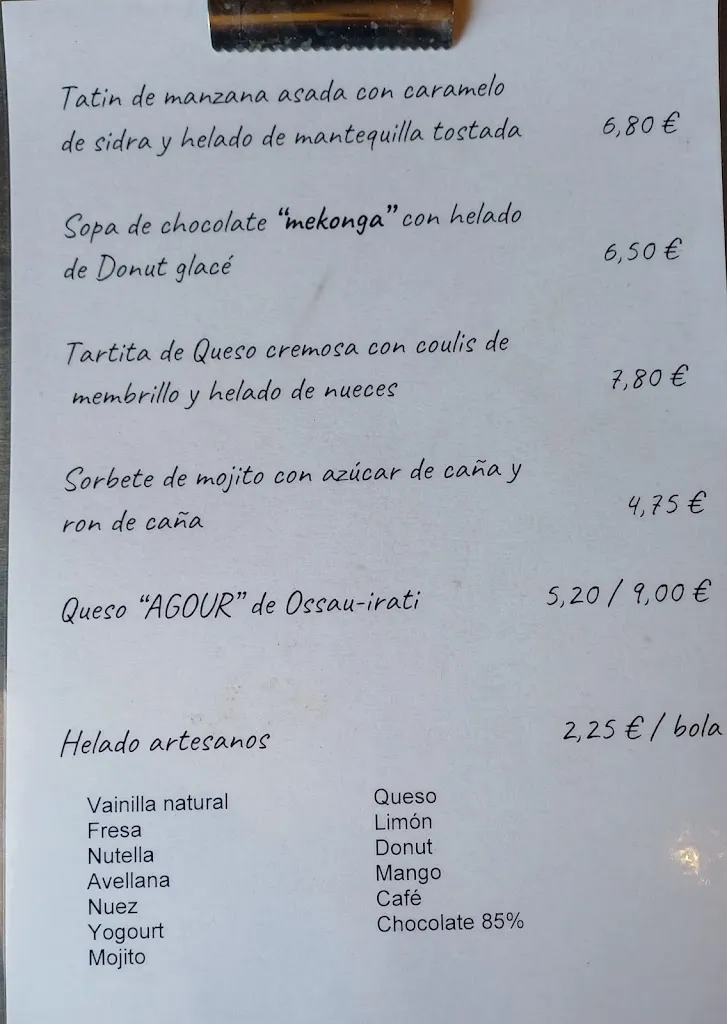 Tatin de manzana asada con caramelo
de sidra y helado de mantequilla tostada 6,80 €
Sopa de chocolate “mekonga” con helado
de Donut glacé 6,50 €
Tartita de Queso cremosa con coulis de
membrillo y helado de nueces 7,80 €
Sorbete de mojito con azúcar de caña y
ron de caña 4,75 €
Queso “AGOUR” de Ossau-irati 5,20 / 9,00 €
Helado artesanos 2,25 € / bola
Vainilla natural
Fresa
Nutella
Avellana
Nuez
Yogourt
Mojito
Queso
Limón
Donut
Mango
Café
Chocolate 85%